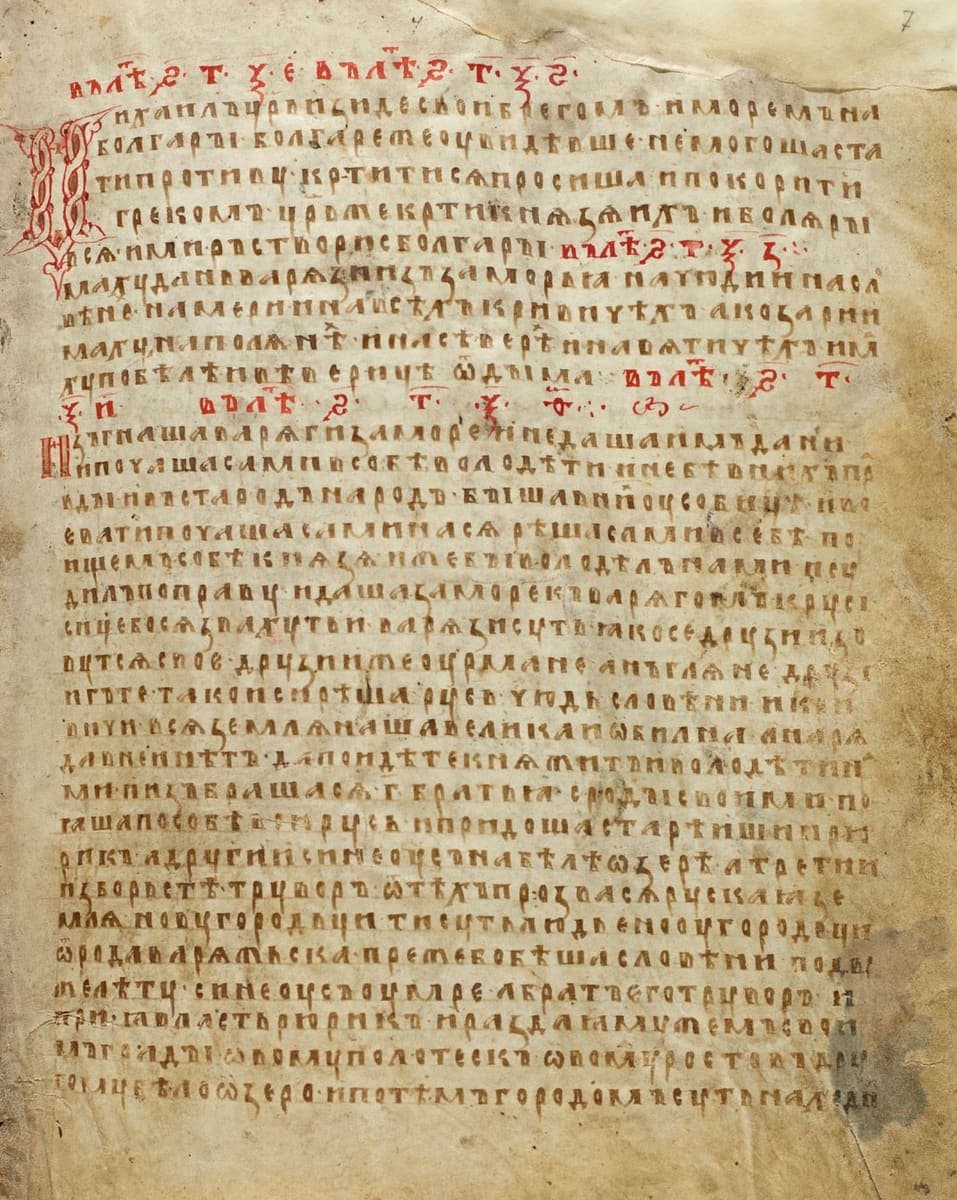 7
въ лѣт҃ ѕ҃·т҃·ѯ҃·е҃ въ лѣт҃ ѕ҃·т҃·ѯ҃·ѕ҃·
Михаилъ цр҃ь изиде с вои брегомъ и моремъ на
болгары· болгаре же оувидѣвше· не могоша ста
ти противу· кр҃тити сѧ просиша и покорити
грекомъ цр҃ь же кр҃ти кнѧзѧ ихъ и болѧры
всѧ· и миръ створи с болгары· въ лѣт҃ ѕ҃·т҃·ѯ҃·з҃·
имаху дань варѧзи изъ заморьꙗ на чюди и на сло
вѣне· на мери и на всѣхъ кривичѣхъ· а козари и
маху на полѧнѣх· и на сѣверѣх и на вѧтичѣхъ им
аху по бѣлѣи вѣверицѣ ѿ дыма· въ лѣт҃· ѕ҃· т҃·
ѯ҃·и҃ въ лѣт҃· ѕ҃· т҃· ѯ҃· ѳ҃·
Изъгнаша варѧги за море и не даша имъ дани
и почаша сами в собѣ володѣти и не бѣ в нихъ пра
вды и въста родъ на родъ· быша в них оусобицѣ· и во
евати почаша сами на сѧ рѣша сами в себѣ· по
ищемъ собѣ кнѧзѧ· иже бы володѣлъ нами и су
дилъ по праву· идаша за море къ варѧгомъ к руси·
сице бо сѧ звахуть и· варѧзи суть· ꙗко се друзии зо
вутсѧ свое· друзии же оурмане· анъглѧне друзи
и гъте· тако и си рѣша русь· чюдь словѣни и кри
вичи· всѧ землѧ наша велика и ѡбилна· а нарѧ
да в неи нѣтъ· да поидѣте кнѧжитъ и володѣти на
ми· и изъбрашасѧ г҃ братьꙗ· с роды своими· и по
ꙗша по собѣ всю русь· и придоша старѣишии рю
рикъ а другии синеоусъ на бѣлѣѡзерѣ· а третии
изборьстѣ труворъ· ѿ тѣхъ прозвасѧ рускаꙗ зе
млѧ новугородьци ти суть людье нооугородьци
ѿ рода варѧжьска· преже бо бѣша словѣни· по дъву
же лѣту· синеоусъ оумре· а братъ его труворъ· и
приꙗ власть рюрикъ· и раздаꙗ мужемъ свои
мъ грады· ѡвому полотескъ ѡвому ростовъ дру
гому бѣлоѡзеро· и по тѣмъ городомъ суть находн